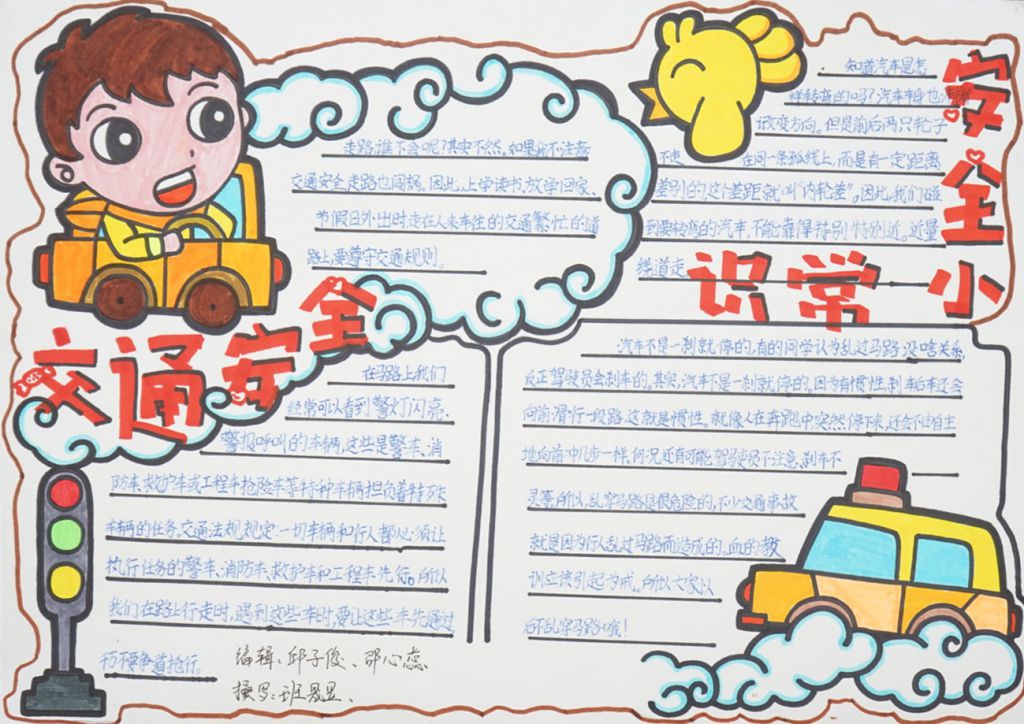 交通安全
安全小常识
走路谁不会呢?其实不然。如果我不注意
交通安全,走路也闯祸。因此,上学读书,放学回家、
节假日外出时走在人来车往的交通繁忙的道
路上,要尊守交通规则。
知道汽车是怎
样转弯的吗?汽车车身也
改变方向。但是前后两只轮子
不走 在同一条弧线上,而是有一定距离
差别的,这个差距就叫“内轮差”。因此,我们碰
到要转弯的汽车,不能靠得特别特别近。近量
绕道走
在马路上我们
经常可以看到警灯闪亮、
警报呼叫的车辆,这些是警车、消
防车、救护车或工程车抢险车等特种车辆担负着特殊
车辆的任务。交通法规规定:一切车辆和行人都必须让
执行任务的警车、消防车、救护车和工程车先行。所以
我们在路上行走时,遇到这些车时,要让这些车先通过
不要争道抢行。
编辑:邱子俊、邵心蕊
汽车不是一刹就停的,有的同学认为乱过马路没啥关系,
反正驾驶员会刹车的。其实,汽车不是一刹就停的,因为有惯性,刹车后车还会
向前滑行一段路,这就是惯性。就像人在奔跑中突然停下来,还会不由自主
地向前冲几步一样,何况还有可能驾驶员不注意,刹车不
灵等,所以,乱穿马路是很危险的,不少交通事故
就是因为行人乱过马路而造成的,血的教
训应该引起为戒。所以大家以
后不乱穿马路哦!